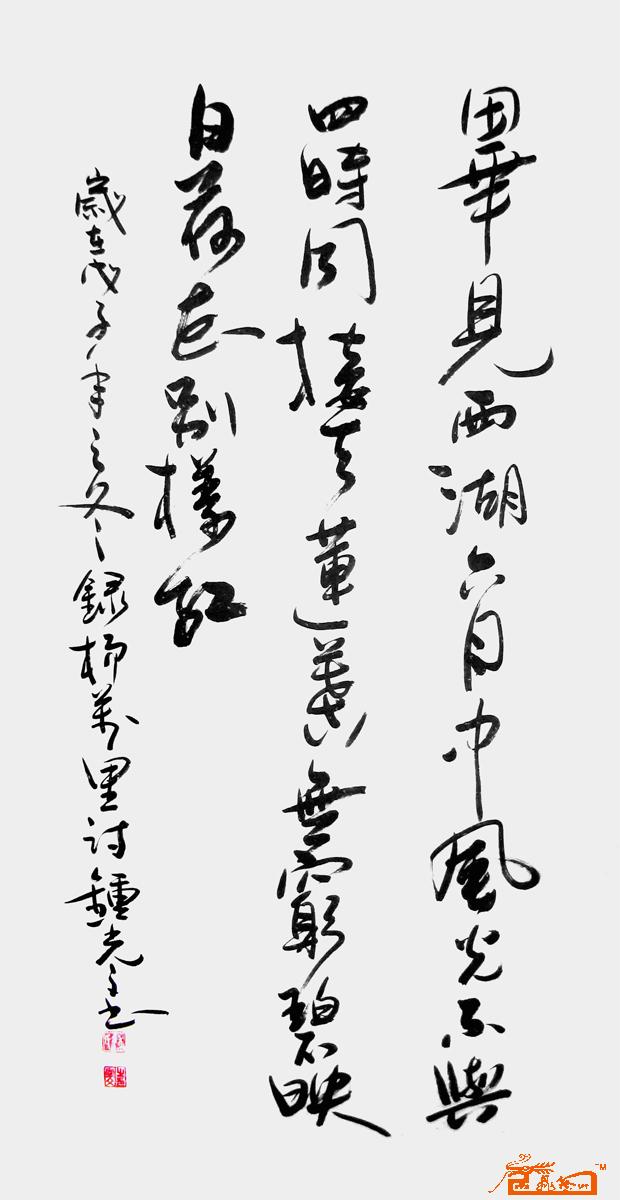 畢見西湖六月中風光不與
四時同接天蓮葉無窮碧映
日荷花別樣紅
歲在戊子年之冬錄楊萬里詩鍾光書